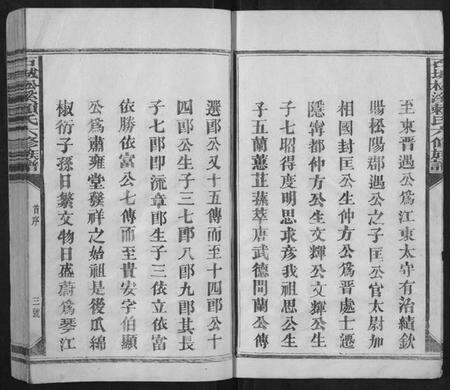 至東晋遇公爲江東太守有治績欽
賜松陽郡遇公之子匡公官太尉加
相國封匡公生仲方公爲晋處士遷
隱寗都仲方公生文輝公文輝公生
子七昭得度明思求彦我祖思公生
子五蘭蕙芷蕪萃唐武德間蘭公傳
選郎公又十五傳而至十四郎公十
四郎公生子三七郎八郎九郎其長
子七郎即流章郎生子三依立依富
依勝依富公七傳而至貴安字伯顯
公爲肅雍堂發祥之始祖是後瓜綿
椒衍子孫日繁文物日盛蔚爲琴江
首序
三號